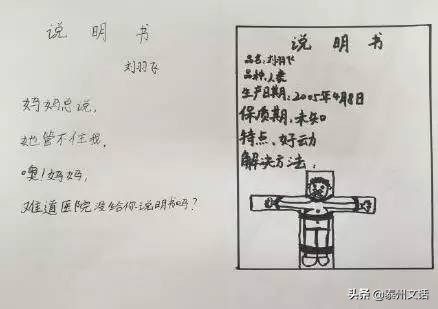 说明书
刘羽飞
妈妈总说,
她管不住我.
噢!妈妈,
难道医院没给你说明书吗?
说明书
品名:刘羽飞
品种.人类
生产日期:2005年4月8日
保质期.未知
特点、好动
解决方法:
头条@泰州文话